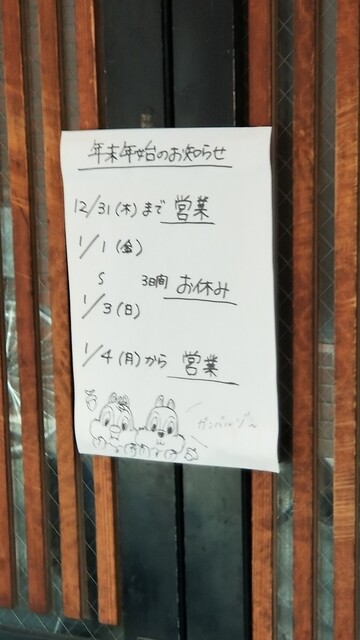 年末年始のお知らせ
12/31(木)まで 営業
1/1(金)
S 3日間 お休み
1/3(日)
1/4(月)から 営業
ガンバルゾ〜